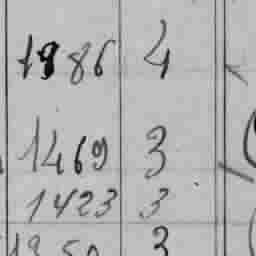 1986 4
1469 3
1423 3
3